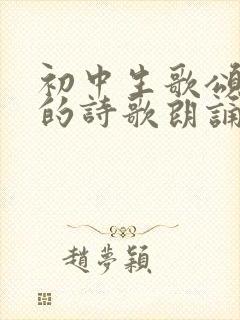 初中生歌頌
的詩歌朗誦
趙夢穎